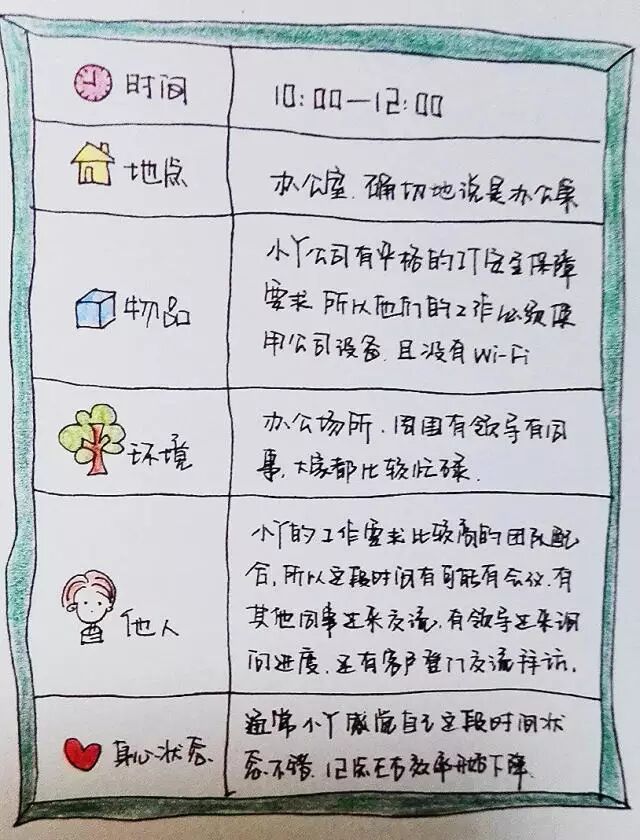 时间
10:00—12:00
地点
办公室,确切地说是办公桌
物品
小丫公司有严格的IT安全保障
要求,所以他们的工作必须使
用公司设备,且没有Wi-Fi
环境
办公场所,周围有领导有同
事,大家都比较忙碌.
他人
小丫的工作要求比较高的团队配
合,所以这段时间有可能有会议,有
其他同事过来交流,有领导过来询
问进度,还有客户登门交流拜访.
身心状态
通常小丫感觉自己这段时间状
态不错,12点左右效率开始下降.